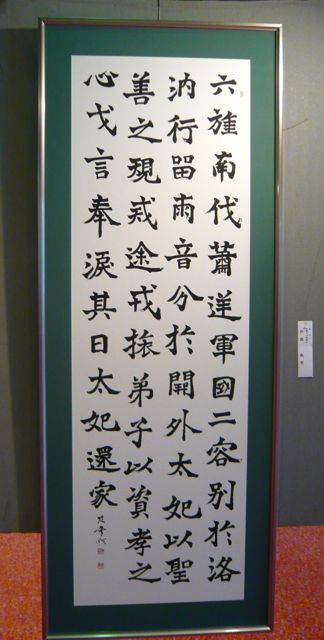 六旌南伐蕭逆軍國二容別於洛
汭行留兩音分於開外太妃以聖
善之規戒途戎旅弟子以資孝之
心戈言奉淚其日太妃還家